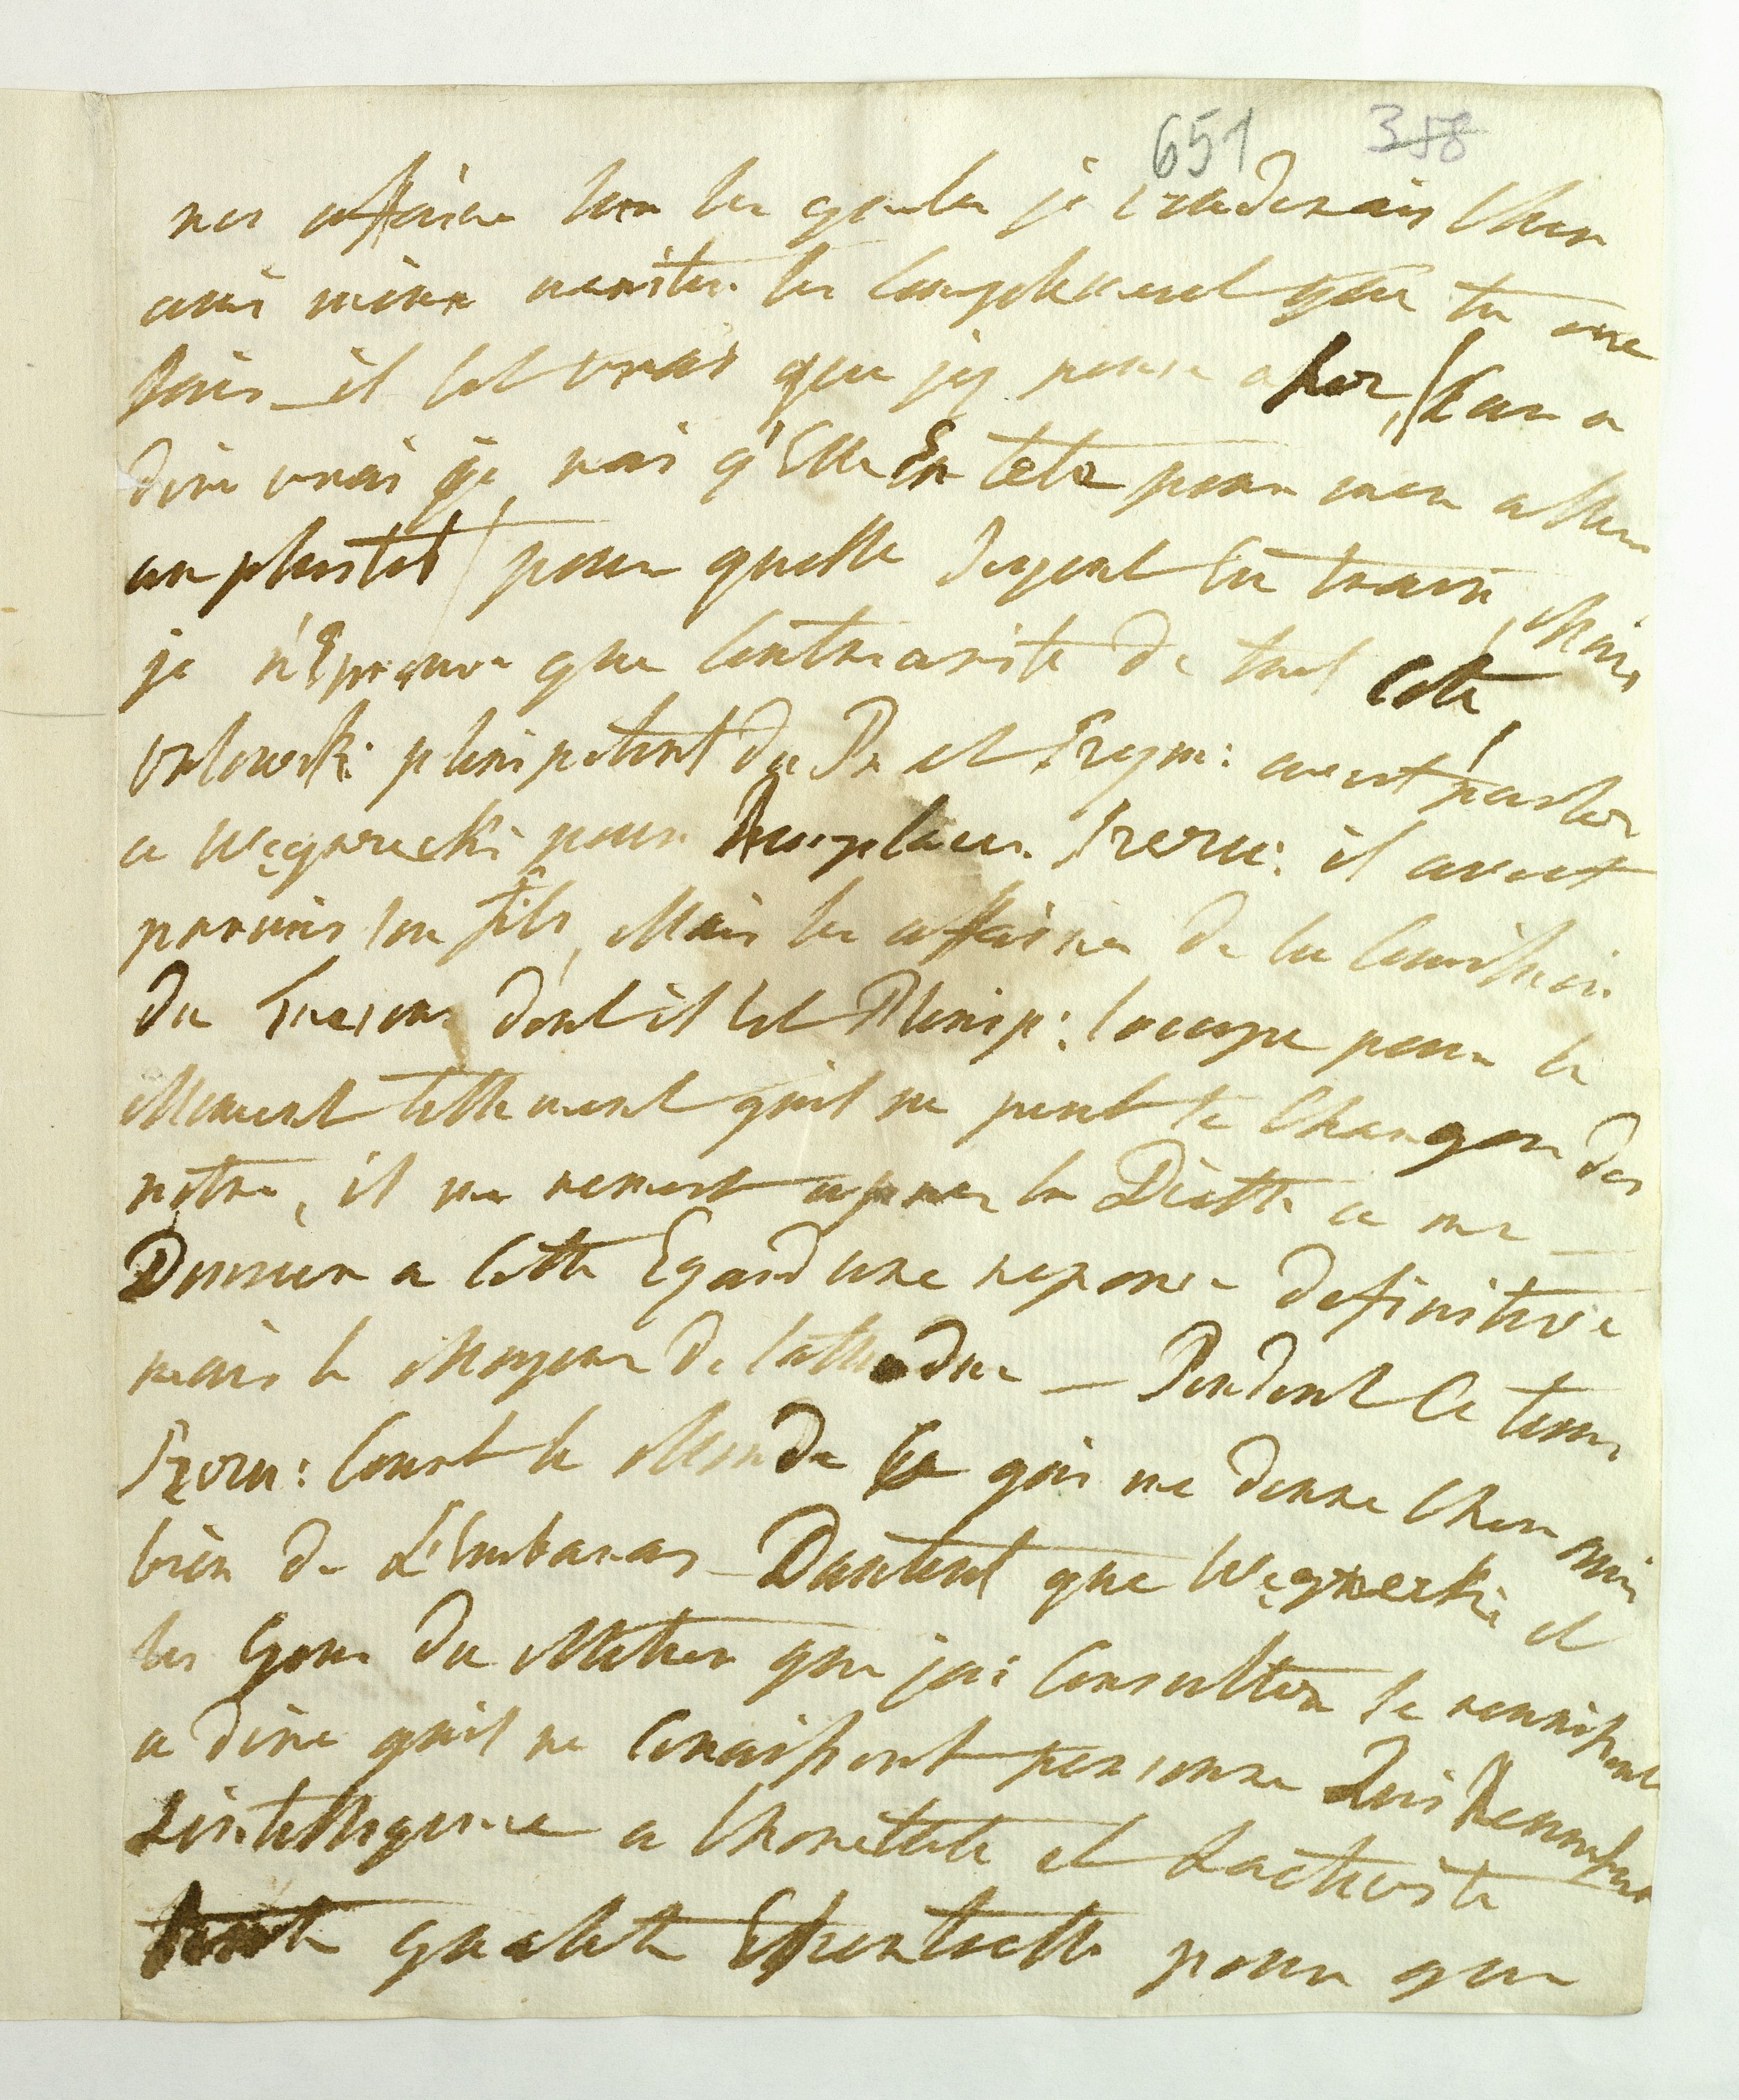 651 358
nos affaire sur les quelles je vouderais cher
ami mieux meriter les complement que tu me
fais _ il est vrai que j'y pense assez, / car a
dire vrai je n'ai q'Elle En tete pour mon allen
au plustot / pour quelle soyent En train, Mais
je n'Eprouve que Contrariete de tout Coté,
Orlowski plenipotent du Pr et Prym: avoit parler
a Węgierecki pour Remplacer Szczu: il avoit
promis son fils, Mais les affaires de la Comission
du Tresore dont il Est Plenip: l'occupe pour le
Moment tellement qu'il ne peut se Charger des
notre, il me remest apres la Diette a me _
Donner a Cette Egard une reponse definitive
mais le Moyene de l'attendre — Pendent Ce tems
Szczu: Court le Monde Ce qui me donne Cher ami
bien de L'Embaras _ Dautent que Węgierecki et
les Gens du Metier que j'ai Consulter se reunissent
a dire qu'il ne Conaissent personne qui Reunisse
L'intelligence a l'honetete et L'activite
qualite Essentielle pour que